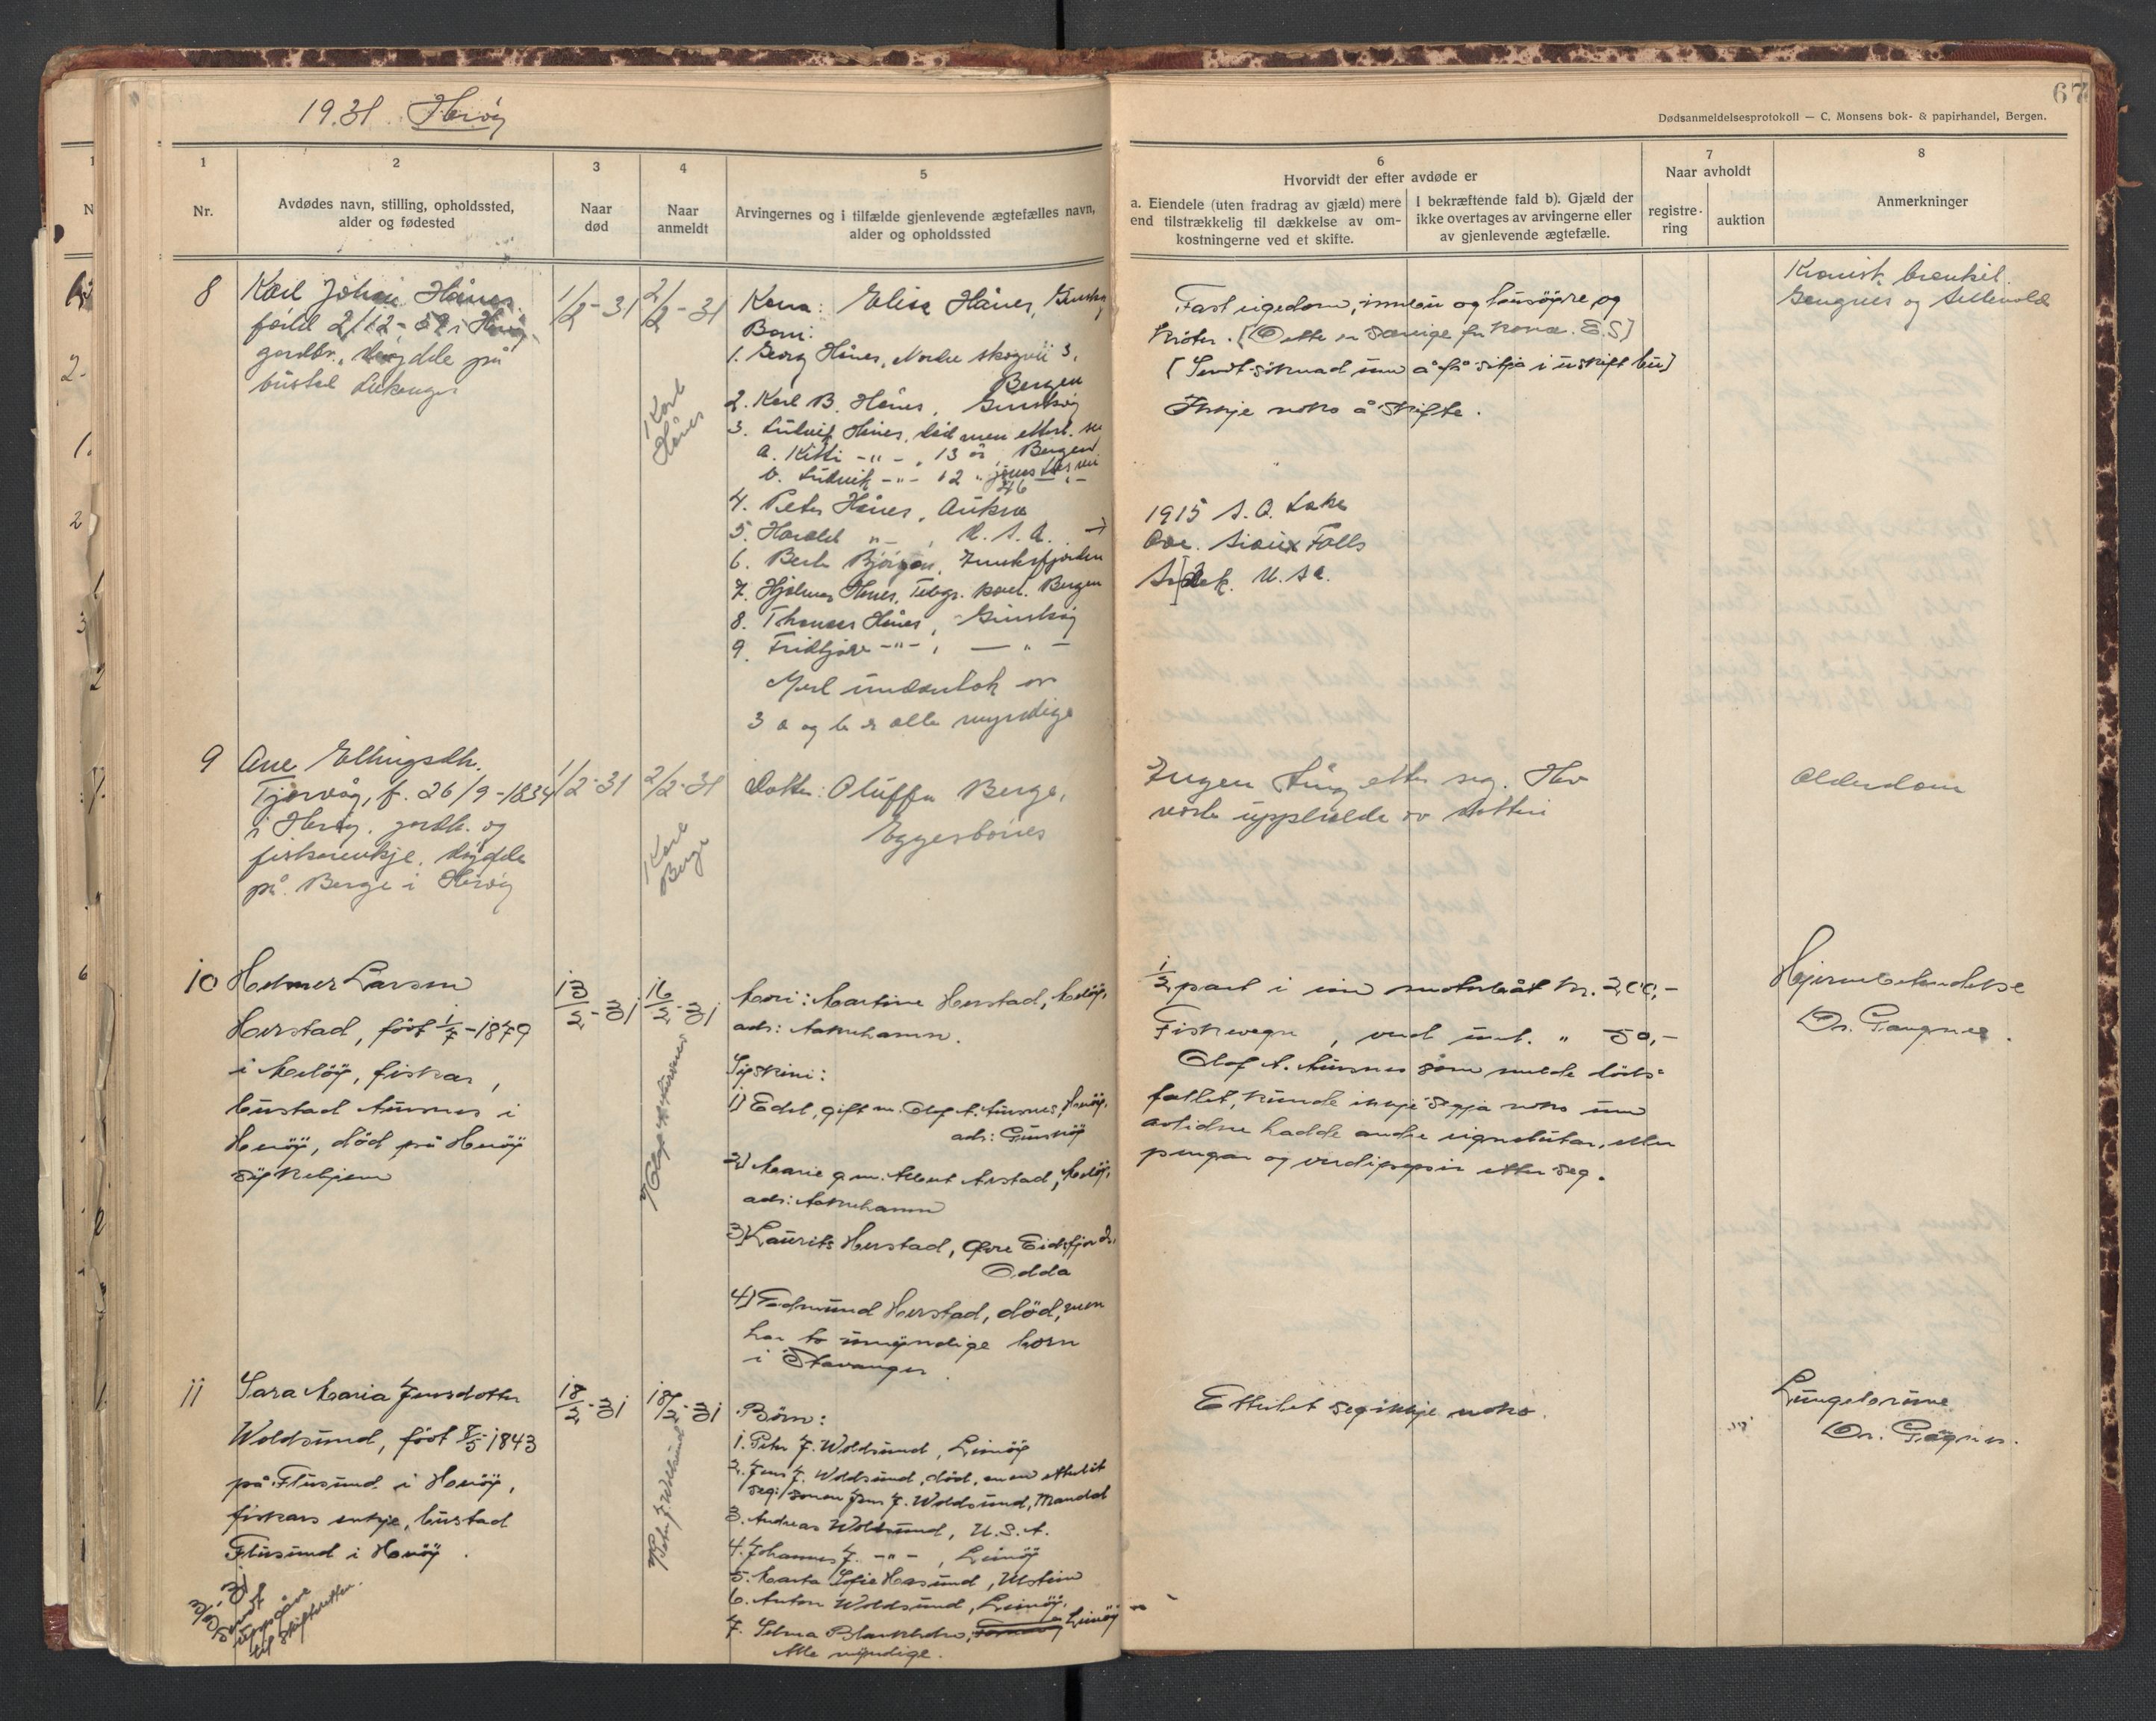 1931. Herøy
67
Dødsanmeldelsesprotokoll — C. Monsens bok- & papirhandel, Bergen.
1
Nr.
2
Avdødes navn, stilling, opholdssted,
alder og fødested
3
Naar
død
4
Naar
anmeldt
5
Arvingernes og i tilfælde gjenlevende ægtefælles navn,
alder og opholdssted
6
Hvorvidt der efter avdøde er
a. Eiendele (uten fradrag av gjæld) mere
end tilstrækkelig til dækkelse av om-
kostningerne ved et skifte.
I bekræftende fald b). Gjæld der
ikke overtages av arvingerne eller
av gjenlevende ægtefælle.
7
Naar avholdt
registre-
ring
auktion
8
Anmerkninger
8
Karl Johan Hånes
født 2/12-52 i Herøy
gardbr., døydde på
bustad
1/2-31
2/2-31
Karl
Hånes
Kona: Elise Hånes, Gurskøy
Born:
1. Georg Hånes, Nordre skogvei 3,
Bergen
2. Karl B. Hånes, Gurskøy
3. Ludvik Hånes, død men etterl. seg
a. Kitti -"- , 13 år, Bergen
b. Ludvik -"- 12 "
46
4. Peter Hånes, Aukra
5. Harald "- , U.S.A. →
6. Berte Bjørgan,
7. Hjalmar Hånes, Telegr. kont. Bergen
8. Thomas Hånes, Gurskøy
9. Fridtjov -"- , — " —
Med undantak av
3 a og b er alle myndige
Fast eigedom, innbu og lausøyre og
krøter. [Dette er særeige for kona. E.S]
[Sendt søknad um å få sitja i uskift bu]
Ikkje noko å skifte.
1915 S. O. Lake
Ave. Sioux Falls
S. Dak. U.S.A.
Kronisk bronkit.
Gangnes og Sellevold
9
Ane Ellingsdtr.
Tjørvåg, f. 26/9-1834
i Herøy. gardbr. og
fiskarenkje, døydde
på Berge i Herøy
1/2-31
2/2-31
Kare
Berge
Dotter: Oluffa Berge,
Eggesbønes
Ingen ting etter seg. Hev
vorte uppheldt av dotteri
Alderdom
10
Helmer Larsen
Herstad, født 1/7-1879
i Meløy, fiskar,
bustad Aurnes i
Herøy, død på Herøy
sjukeheim
13/2-31
16/2-31
Mori: Martine Herstad, Meløy,
ads: Aakrehamn.
Syskini:
1) Edel, gift m. Olaf A. Aurnes, Herøy,
ads: Gurskøy
2) Marie g.m. Albert Arstad, Meløy,
ads: Aakrehamn
3) Laurits Herstad, Øvre Eidsfjord,
Odda
4) Edmund Herstad, død, men
har to umyndige born
i Stavanger.
1/2 part i ein motorbåt kr. 200,-
Fiskevegn, verd uml. " 50,-
Olaf A. Aurnes som melde døds-
fallet, kunde ikkje segja noko um
avlidne hadde andre eignelutar, eller
pengar og verdipapir etter seg.
Hjernebetendelse
Dr. Gangnes.
11
Sara Maria Jensdotter
Voldsund, født 8/5-1843
på Flusund i Herøy,
fiskars enkje, bustad
Flusund i Herøy.
18/2-31
18/2-31
Peter J. Voldsund
Born:
1. Peter J. Voldsund, Leinøy
2. Jens J. Voldsund, død, men etterlét
seg: sonen Jens J. Voldsund, Mandal
3. Andreas Voldsund, U.S.A.
4. Johannes J. -"- , Leinøy
5. Marta Sofie Hasund, Ulstein
6. Anton Voldsund, Leinøy,
7. Selma Blankholm, Leinøy
Alle myndige.
Etterlét seg ikkje noko.
Lungebrune
Dr. Gangnes.
Sendt
uppgåve
til skifteretten.